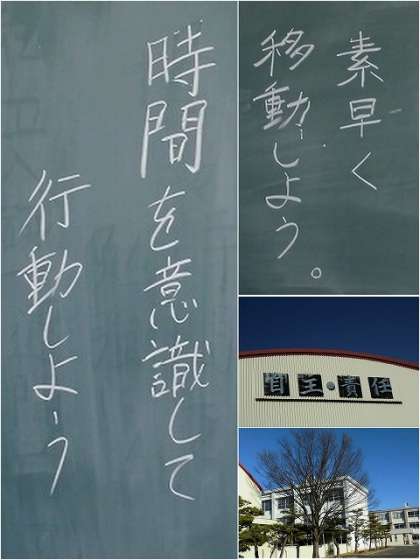 時間を意識して
行動しよう
素早く
移動しよう。
自主・責任